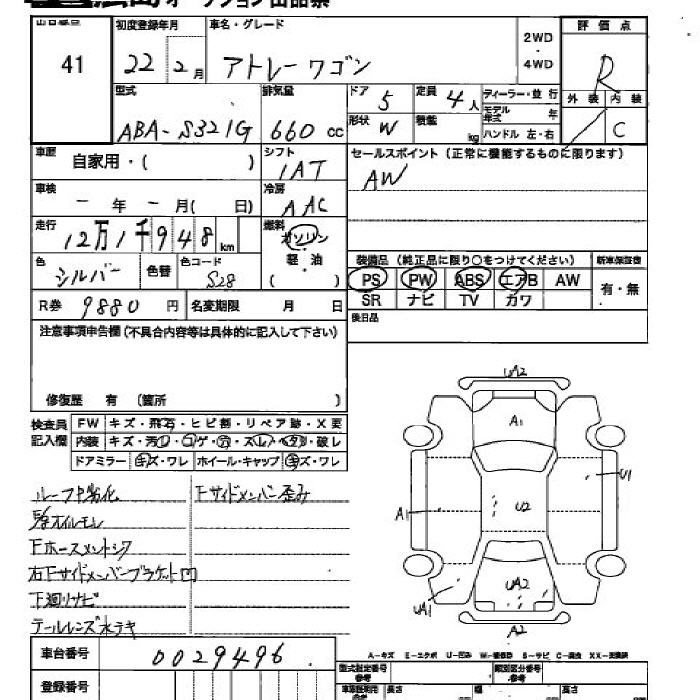 オークション出品票
出品番号 初度登録年月 車名・グレード 2WD・4WD 評価点
41 22 2月 アトレーワゴン R
外装 内装
C
型式 排気量 ドア 5 定員 4人 ディーラー・並行
ABA-S321G 660cc 形状 W 積載 kg モデル年式 年
ハンドル 左・右
車歴 自家用・( ) シフト 1AT セールスポイント(正常に機能するものに限ります)
AW
車検 - 年 - 月( 日) 冷房 AAC
走行 12万1千948km 燃料 ガソリン 軽・油 ( )
色 シルバー 色替 色コード S28
装備品(純正品に限り○をつけてください) 新車保証書
PS PW ABS エアB AW 有・無
SR ナビ TV カワ
R券 9880円 名変期限 月 日 後日品
注意事項申告欄(不具合内容等は具体的に記入して下さい)
修復歴 有 (箇所 )
検査員記入欄 FW キズ・飛石・ヒビ割・リペア跡・X要
内装 キズ・汚レ・コゲ・穴・スレ・ヘタリ・破レ
ドアミラー キズ・ワレ ホイール・キャップ キズ・ワレ
ルーフ内劣化 Fサイドメンバー歪み
オイルモレ
Fホースメントシワ
右Fサイドメンバーブラケット凹
下廻リサビ
テールレンズ水テキ
UA2
A1
U1
A1
U2
UA2
UA1
A2
A-キズ E-エクボ U-凹み W-補修跡 S-サビ C-腐食 XX-交換済
車台番号 0029496
型式指定番号 参考 類別区分番号 参考
登録番号 長さ cm 幅 cm 高さ